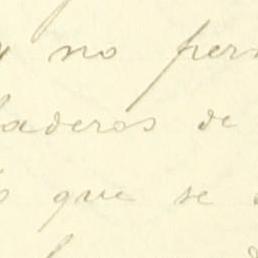 y no per
aderos de
que se